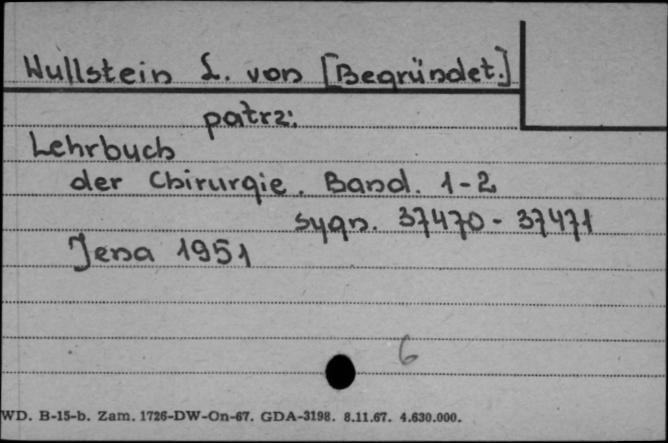 Wullstein L. von [Begründet.]
patrz:
Lehrbuch
der Chirurgie. Band. 1-2
sygn. 37470 - 37471
Jena 1951
6
WD. B-15-b. Zam. 1726-DW-On-67. GDA-3198. 8.11.67. 4.630.000.